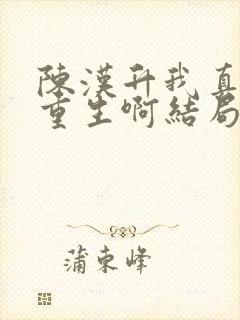 陳漢升我真
重生啊結局
蒲東峰